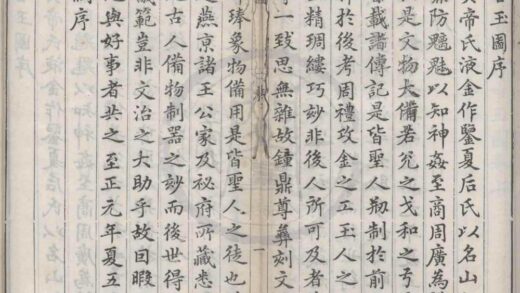 玉圖序
帝氏液金作鑒夏后氏以名山
防魑魅以知神姦至商周廣為
是文物大備若兊之戈和之弓
載諸傳記是皆聖人剏制於前
於後考周禮攻金之工玉人之
精琱縷巧玅非後人所可及者
一致思無雜故鐘鼎尊彞刻文
一
琫象物備用是皆聖人之徒也
燕京諸王公家及祕府所藏悉
古人備物制器之玅而後世得
範豈非文治之大助乎故囙暇
與好事者共之至正元年夏五
序